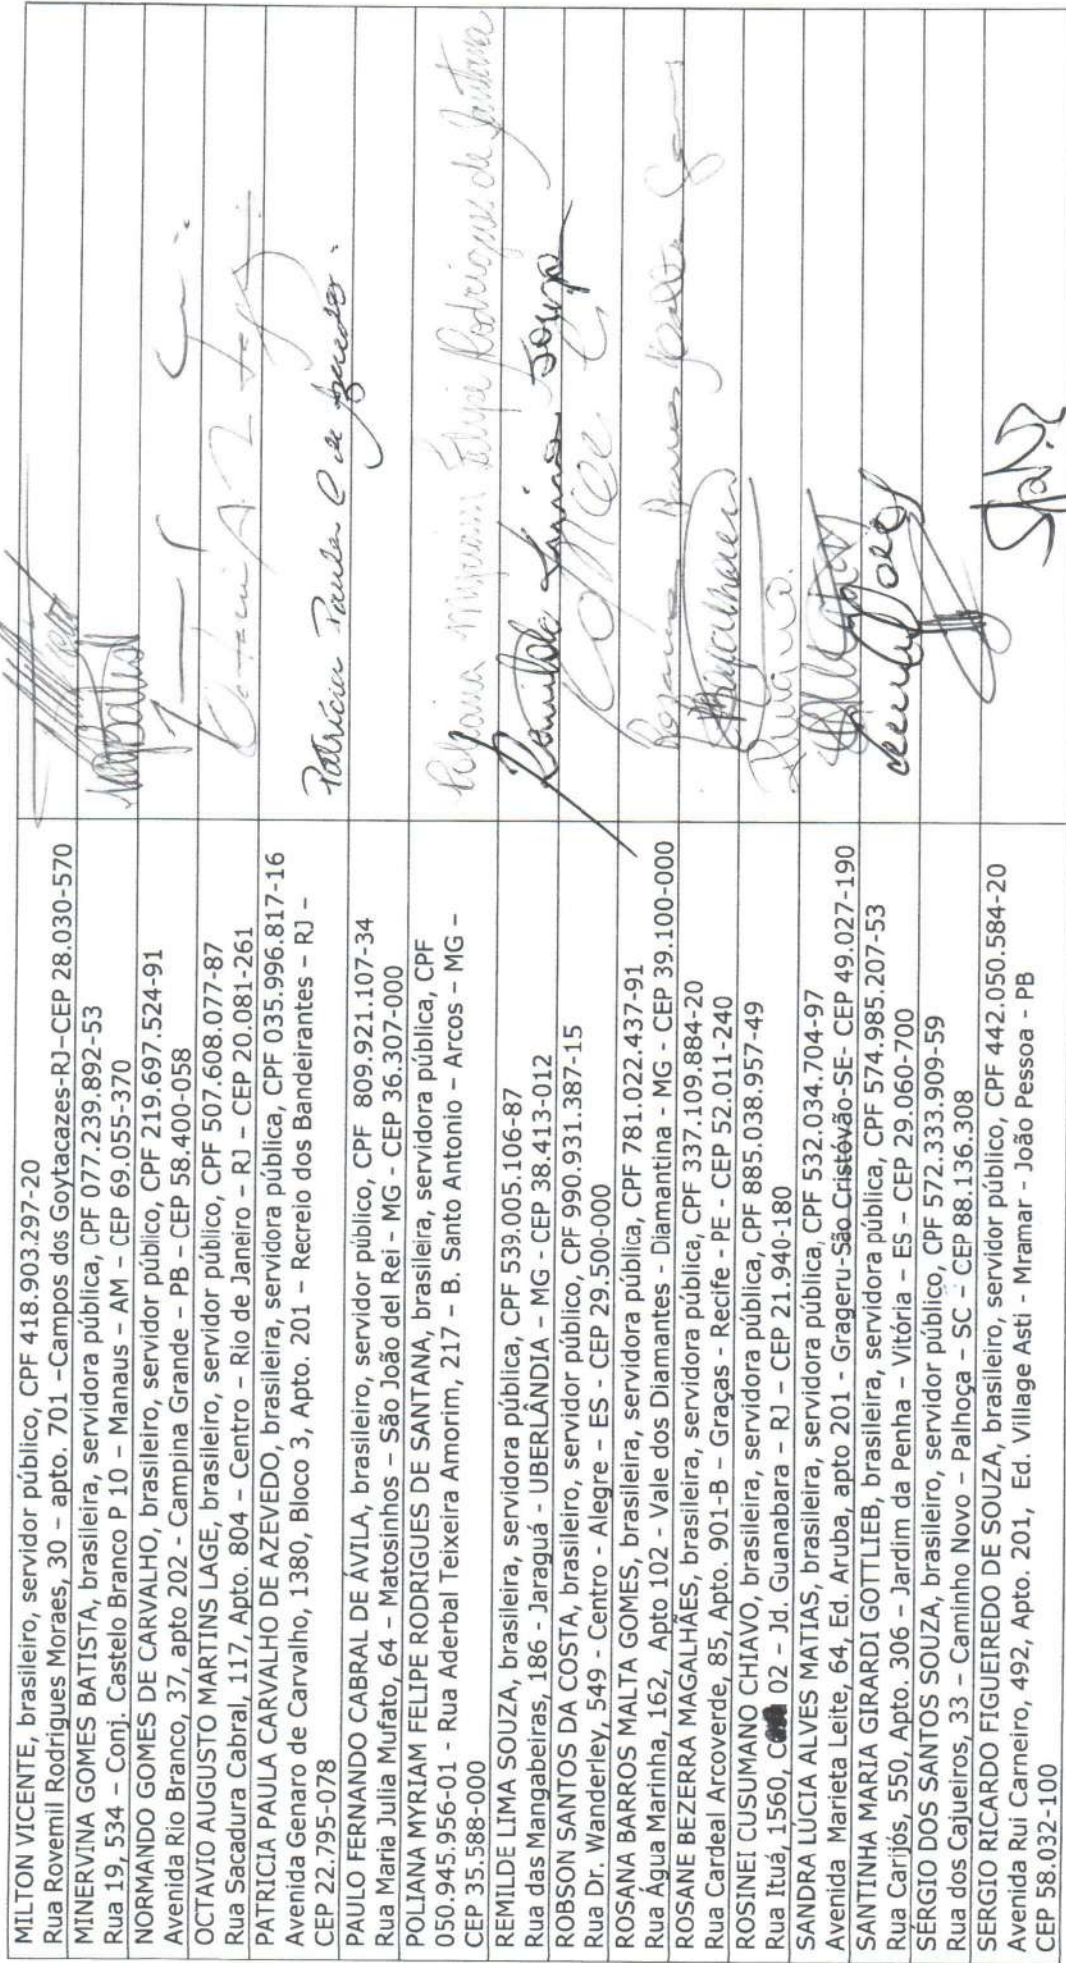 MILTON VICENTE, brasileiro, servidor público, CPF 418.903.297-20
Rua Rovemil Rodrigues Moraes, 30 – apto. 701 -Campos dos Goytacazes-RJ-CEP 28.030-570
MINERVINA GOMES BATISTA, brasileira, servidora pública, CPF 077.239.892-53
Rua 19, 534 – Conj. Castelo Branco P 10 – Manaus – AM – CEP 69.055-370
NORMANDO GOMES DE CARVALHO, brasileiro, servidor público, CPF 219.697.524-91
Avenida Rio Branco, 37, apto 202 - Campina Grande – PB – CEP 58.400-058
OCTAVIO AUGUSTO MARTINS LAGE, brasileiro, servidor público, CPF 507.608.077-87
Rua Sacadura Cabral, 117, Apto. 804 – Centro – Rio de Janeiro – RJ – CEP 20.081-261
PATRICIA PAULA CARVALHO DE AZEVEDO, brasileira, servidora pública, CPF 035.996.817-16
Avenida Genaro de Carvalho, 1380, Bloco 3, Apto. 201 – Recreio dos Bandeirantes – RJ –
CEP 22.795-078
Patrícia Paula C de Azevedo.
PAULO FERNANDO CABRAL DE ÁVILA, brasileiro, servidor público, CPF 809.921.107-34
Rua Maria Julia Mufato, 64 – Matosinhos – São João del Rei – MG - CEP 36.307-000
POLIANA MYRIAM FELIPE RODRIGUES DE SANTANA, brasileira, servidora pública, CPF
050.945.956-01 - Rua Aderbal Teixeira Amorim, 217 – B. Santo Antonio – Arcos – MG –
CEP 35.588-000
Poliana Myriam Felipe Rodrigues de Santana
REMILDE LIMA SOUZA, brasileira, servidora pública, CPF 539.005.106-87
Rua das Mangabeiras, 186 - Jaraguá - UBERLÂNDIA – MG - CEP 38.413-012
Remilde Lima Souza
ROBSON SANTOS DA COSTA, brasileiro, servidor público, CPF 990.931.387-15
Rua Dr. Wanderley, 549 - Centro - Alegre – ES - CEP 29.500-000
ROSANA BARROS MALTA GOMES, brasileira, servidora pública, CPF 781.022.437-91
Rua Água Marinha, 162, Apto 102 - Vale dos Diamantes - Diamantina - MG - CEP 39.100-000
Rosana Barros Malta Gomes
ROSANE BEZERRA MAGALHÃES, brasileira, servidora pública, CPF 337.109.884-20
Rua Cardeal Arcoverde, 85, Apto. 901-B – Graças - Recife - PE - CEP 52.011-240
ROSINEI CUSUMANO CHIAVO, brasileira, servidora pública, CPF 885.038.957-49
Rua Ituá, 1560, 02 – Jd. Guanabara – RJ – CEP 21.940-180
SANDRA LÚCIA ALVES MATIAS, brasileira, servidora pública, CPF 532.034.704-97
Avenida Marieta Leite, 64, Ed. Aruba, apto 201 - Grageru-São Cristóvão-SE- CEP 49.027-190
SANTINHA MARIA GIRARDI GOTTLIEB, brasileira, servidora pública, CPF 574.985.207-53
Rua Carijós, 550, Apto. 306 – Jardim da Penha – Vitória – ES – CEP 29.060-700
SÉRGIO DOS SANTOS SOUZA, brasileiro, servidor público, CPF 572.333.909-59
Rua dos Cajueiros, 33 – Caminho Novo – Palhoça – SC – CEP 88.136.308
SERGIO RICARDO FIGUEIREDO DE SOUZA, brasileiro, servidor público, CPF 442.050.584-20
Avenida Rui Carneiro, 492, Apto. 201, Ed. Village Asti - Mramar - João Pessoa - PB
CEP 58.032-100